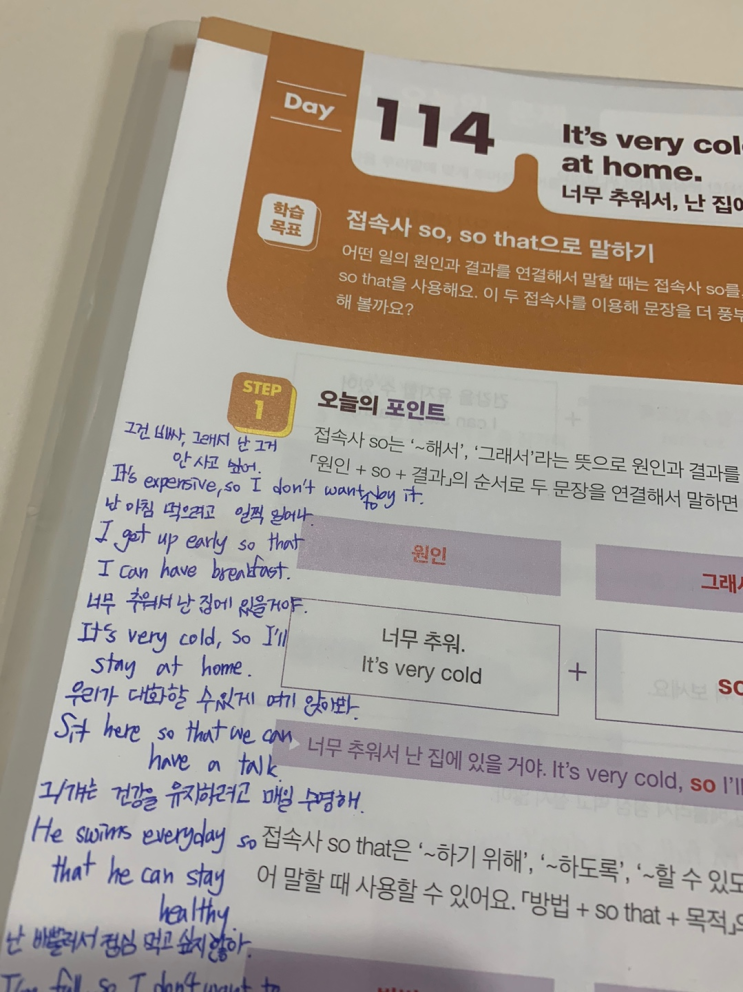 Day 114
It's very col
at home.
너무 추워서, 난 집에
학습
목표
접속사 so, so that으로 말하기
어떤 일의 원인과 결과를 연결해서 말할 때는 접속사 so를
so that을 사용해요. 이 두 접속사를 이용해 문장을 더 풍부
해 볼까요?
STEP
1
오늘의 포인트
접속사 so는 '~해서', '그래서'라는 뜻으로 원인과 결과를
「원인 + so + 결과」의 순서로 두 문장을 연결해서 말하면
원인
그래서
너무 추워.
It's very cold
+
so
너무 추워서 난 집에 있을 거야. It's very cold, so I'll
접속사 so that은 '~하기 위해', '~하도록', '~할 수 있도
어 말할 때 사용할 수 있어요. 「방법 + so that + 목적」의
그건 비싸, 그래서 난 그거
안 사고 싶어.
It's expensive, so I don't want to by it.
난 아침 먹으려고 일찍 일어나.
I get up early so that
I can have breakfast.
너무 추워서 난 집에 있을거야.
It's very cold, so I'll
stay at home.
우리가 대화할 수 있게 여기 앉아봐.
Sit here so that we can
have a talk
그/걔는 건강을 유지하려고 매일 수영해.
He swims everyday so
that he can stay
healthy.
난 배불러서 점심 먹고 싶지 않아.
I'm full, so I don't want to